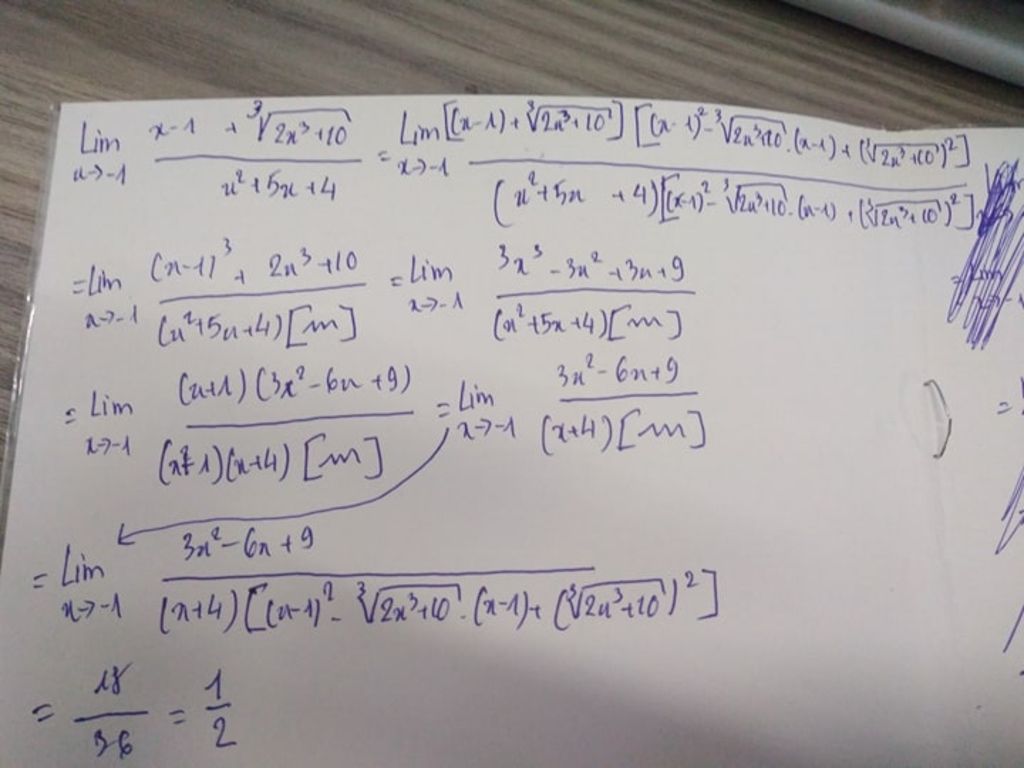 Lim x→-1 (x-1 + ∛(2x³+10)) / (x²+5x+4) = Lim x→-1 [(x-1) + ∛(2x³+10)] [(x-1)² - ∛(2x³+10) . (x-1) + (∛(2x³+10))²] / (x²+5x+4) [(x-1)² - ∛(2x³+10) . (x-1) + (∛(2x³+10))²]
= Lim x→-1 ((x-1)³ + 2x³+10) / (x²+5x+4)[m] = Lim x→-1 (3x³ - 3x² + 3x + 9) / (x²+5x+4)[m]
= Lim x→-1 (x+1)(3x² - 6x + 9) / (x+1)(x+4)[m] = Lim x→-1 (3x² - 6x + 9) / (x+4)[m]
= Lim x→-1 (3x² - 6x + 9) / (x+4)[(x-1)² - ∛(2x³+10) . (x-1) + (∛(2x³+10))²]
= 18/36 = 1/2